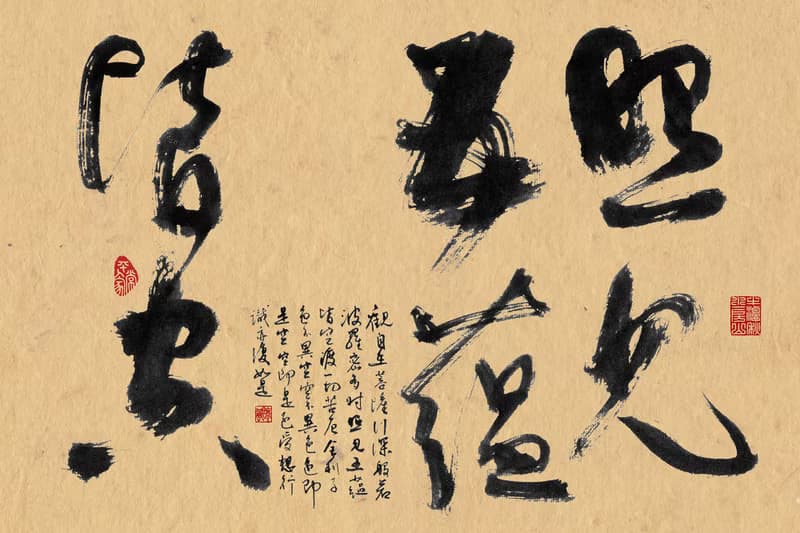 照見
五蘊
皆空
觀自在菩薩行深般若
波羅蜜多時照見五蘊
皆空渡一切苦厄舍利子
色不異空空不異色色即
是空空即是色受想行
識亦復如是